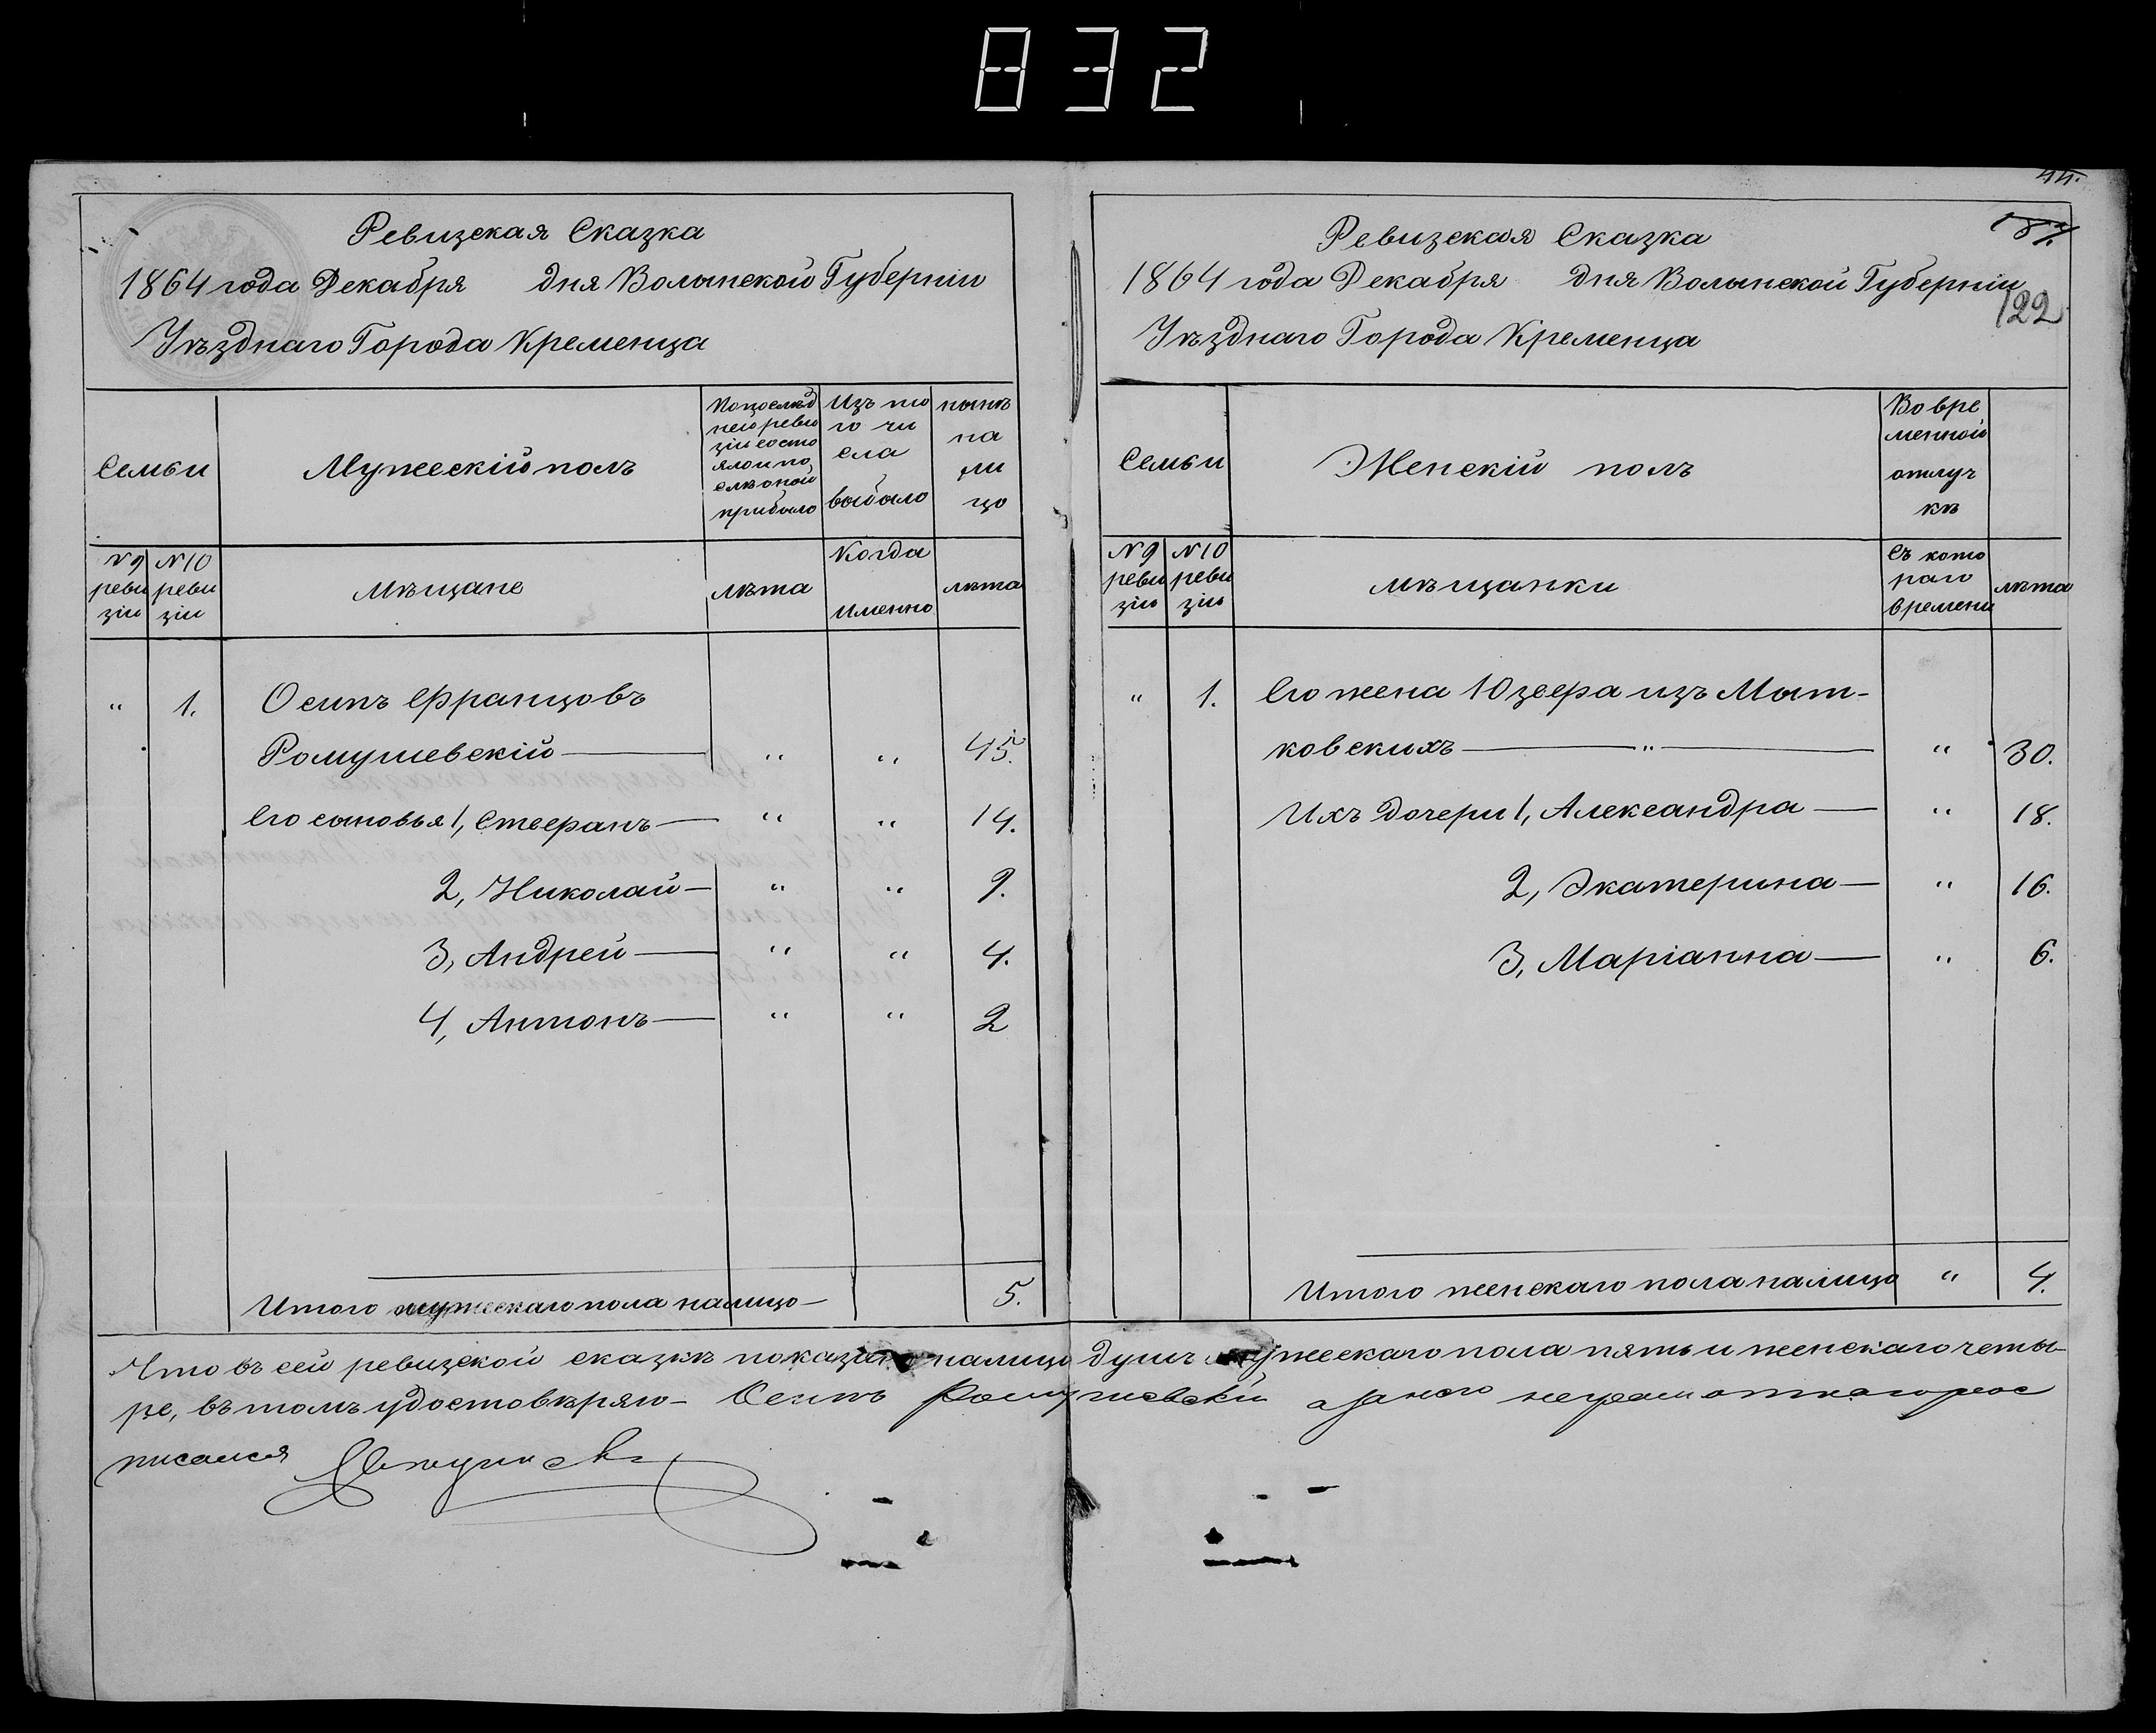 832
Ревизская Сказка
1864 года Декабря дня Волынской Губерніи
Уѣзднаго Города Кременца
Семьи
Мужескій полъ
По послѣд
ней реви
зіи состо
яло и по
слѣ оной
прибыло
Изъ то
го чи
сла
выбыло
нынѣ
на
ли
цо
№ 9
реви
зіи
№ 10
реви
зіи
Мѣщане
лѣта
Когда
именно
лѣта
" 1. Осипъ Францовъ
Ромушевскій — " " 45.
Его сыновья 1, Стефанъ — " " 14.
2, Николай — " " 9.
3, Андрей — " " 4.
4, Антонъ — " " 2
Итого мужескаго пола налицо — 5.
44.
122
Ревизская Сказка
1864 года Декабря дня Волынской Губерніи
Уѣзднаго Города Кременца
Семьи
Женскій полъ
Во вре
менной
отлуч
кѣ
№ 9
реви
зіи
№ 10
реви
зіи
мѣщанки
Съ кото
раго
времени
лѣта
" 1. Его жена Юзефа изъ Мыт-
ковскихъ — " — " 30.
Ихъ дочери 1, Александра — " 18.
2, Экатерина — " 16.
3, Маріанна — " 6.
Итого женскаго пола налицо " 4.
Что въ сей ревизской сказкѣ показано налицо душъ мужескаго пола пять и женскаго четы-
ре, въ томъ удостовѣряю — Осипъ Ромушевскій а за него неграмотнаго рос
писался